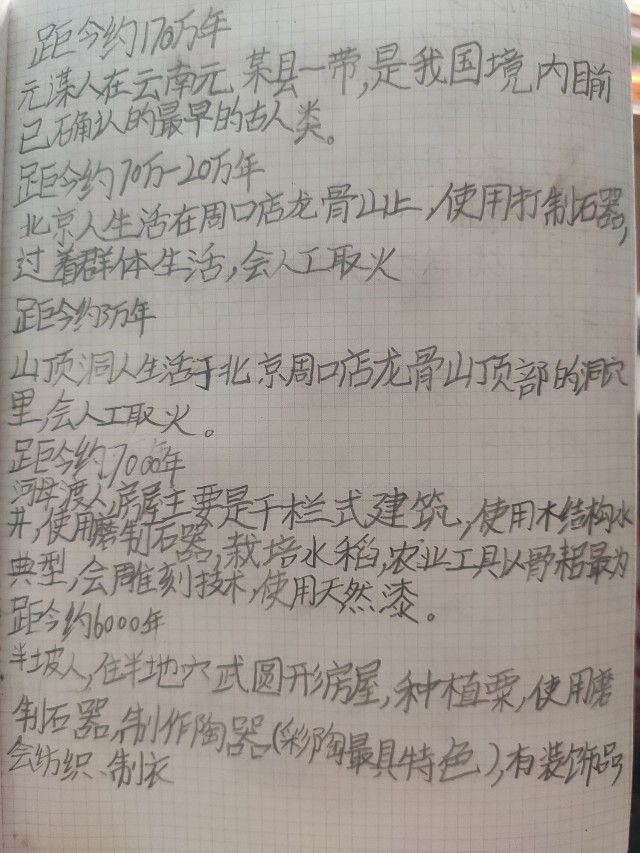 距今约170万年
元谋人在云南元某县一带,是我国境内目前
已确认的最早的古人类。
距今约70万-20万年
北京人生活在周口店龙骨山上,使用打制石器,
过着群体生活,会人工取火
距今约3万年
山顶洞人生活于北京周口店龙骨山顶部的洞穴
里,会人工取火。
距今约7000年
河母渡人,房屋主要是干栏式建筑,使用木结构水
井,使用磨制石器,栽培水稻,农业工具以骨耜最为
典型,会雕刻技术,使用天然漆。
距今约6000年
半坡人,住半地穴式圆形房屋,种植粟,使用磨
制石器,制作陶器(彩陶最具特色),有装饰品
会纺织、制衣